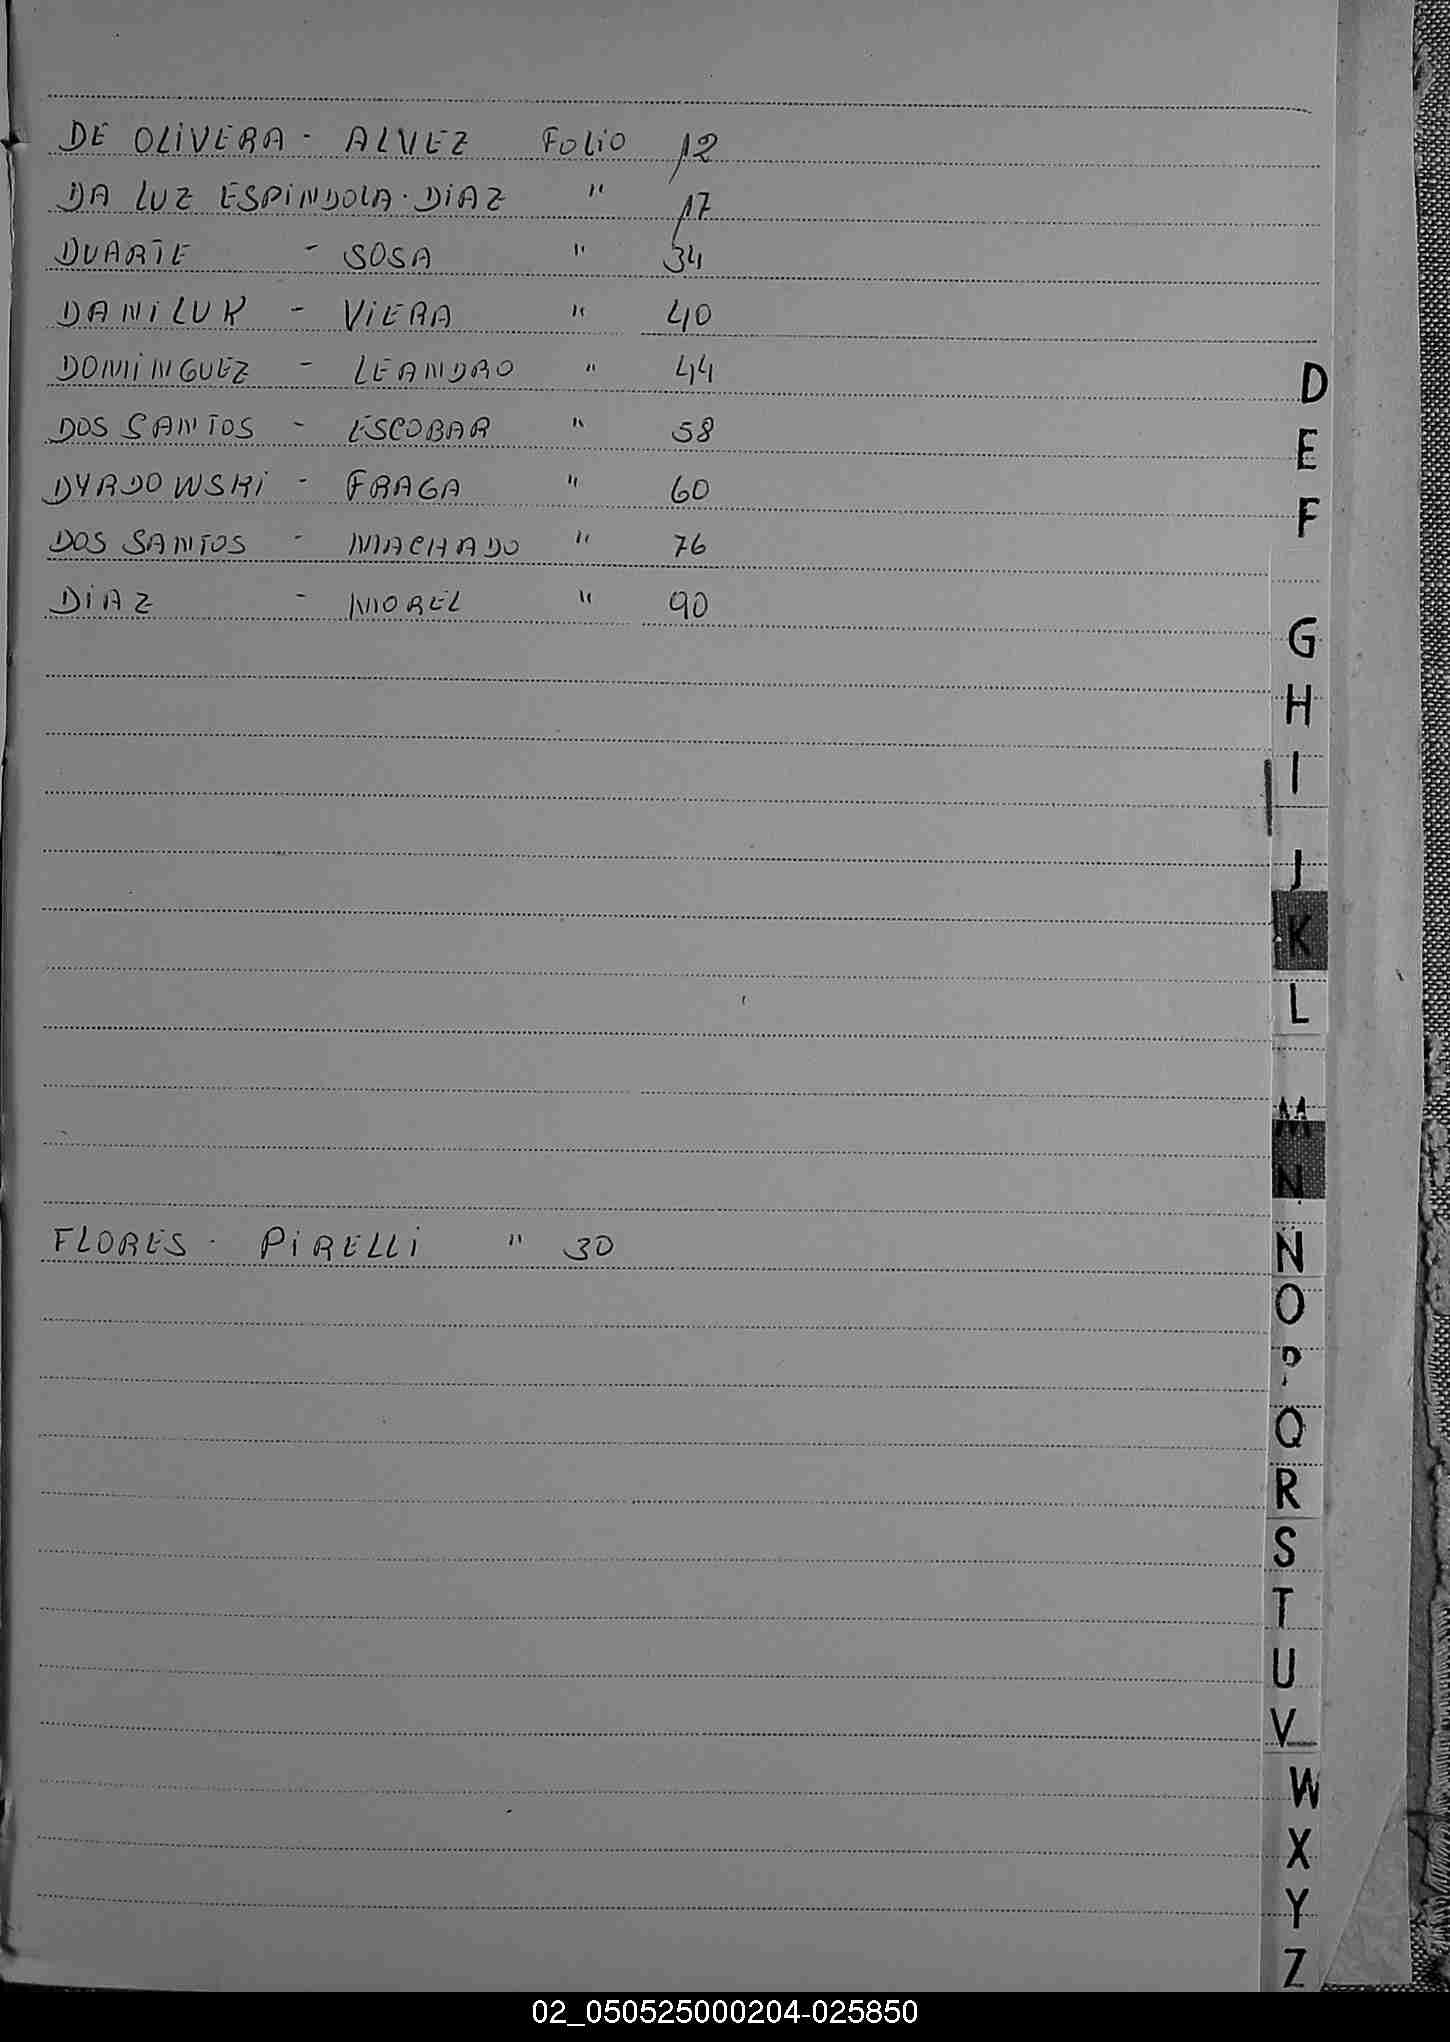 DE OLIVERA - ALVEZ Folio 12
DA LUZ ESPINDOLA - DIAZ " 17
DUARTE - SOSA " 34
DANILUK - VIERA " 40
DOMINGUEZ - LEANDRO " 44
DOS SANTOS - ESCOBAR " 58
DYRDOWSKI - FRAGA " 60
DOS SANTOS - MACHADO " 76
DIAZ - MOREL " 90
FLORES - PIRELLI " 30
D
E
F
G
H
I
J
K
L
M
N
Ñ
O
P
Q
R
S
T
U
V
W
X
Y
Z
02_050525000204-025850